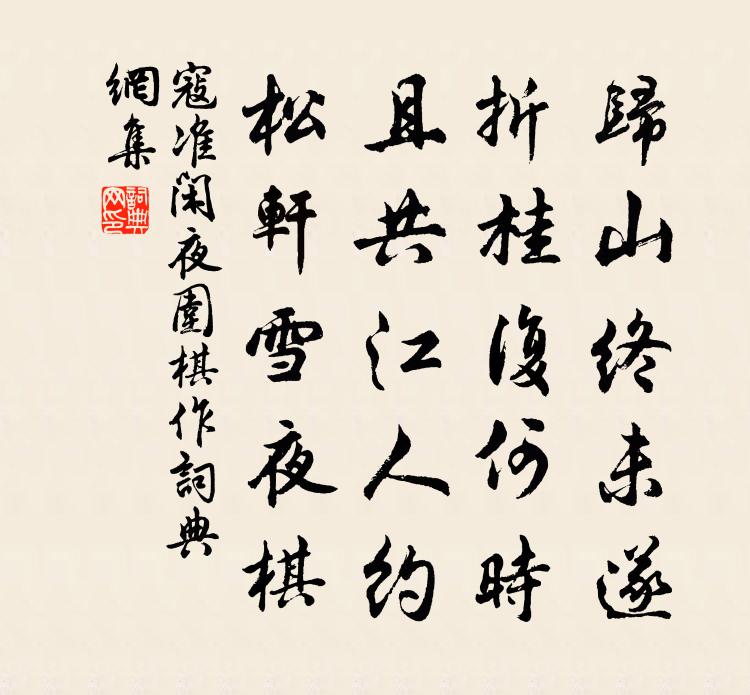 歸山終未遂
折桂復何時
且共江人約
松軒雪夜棋
寇准閑夜圍棋作詞典
網集
詞典
网印